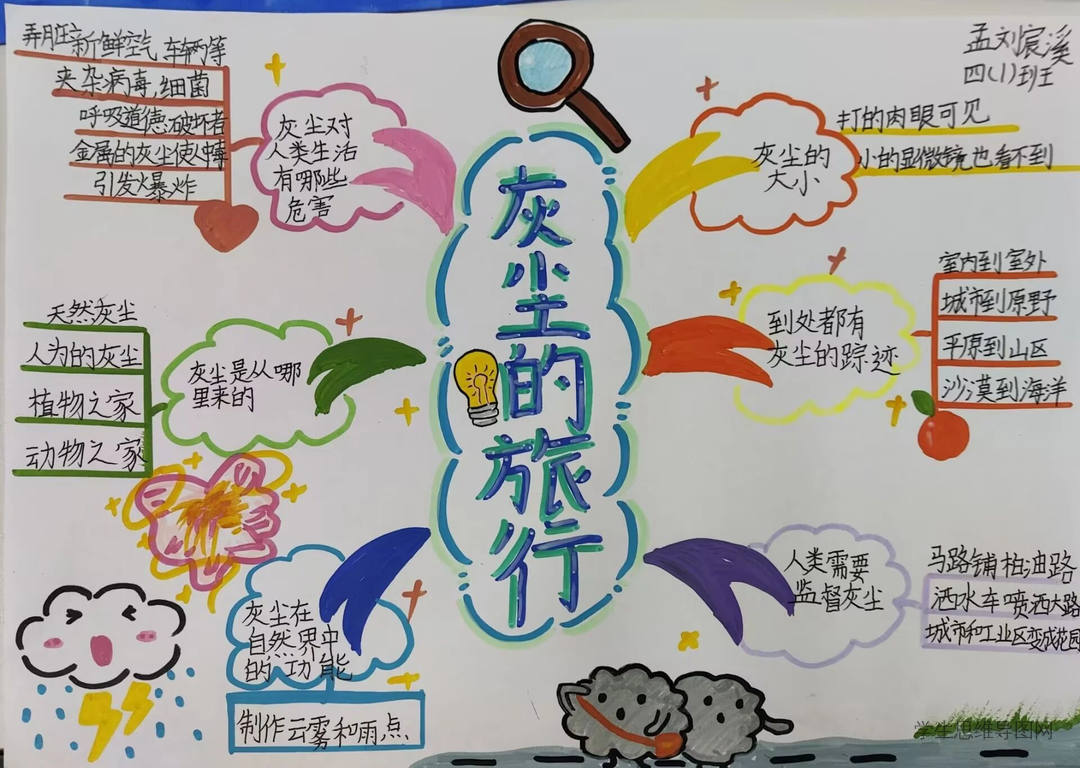 孟刘宸溪
四(1)班
灰尘的旅行
灰尘对
人类生活
有哪些
危害
弄脏新鲜空气 车辆等
夹杂病毒,细菌
呼吸道德破坏者
金属的灰尘使
引发爆炸
灰尘是从哪
里来的
天然灰尘
人为的灰尘
植物之家
动物之家
灰尘在
自然界中
的功能
制作云雾和雨点
灰尘的
大小
打的肉眼可见
小的显微镜也看不到
到处都有
灰尘的踪迹
室内到室外
城市到原野
平原到山区
沙漠到海洋
人类需要
监督灰尘
马路铺柏油路
洒水车喷洒大路
城市和工业区变成花园
学生思维导图网